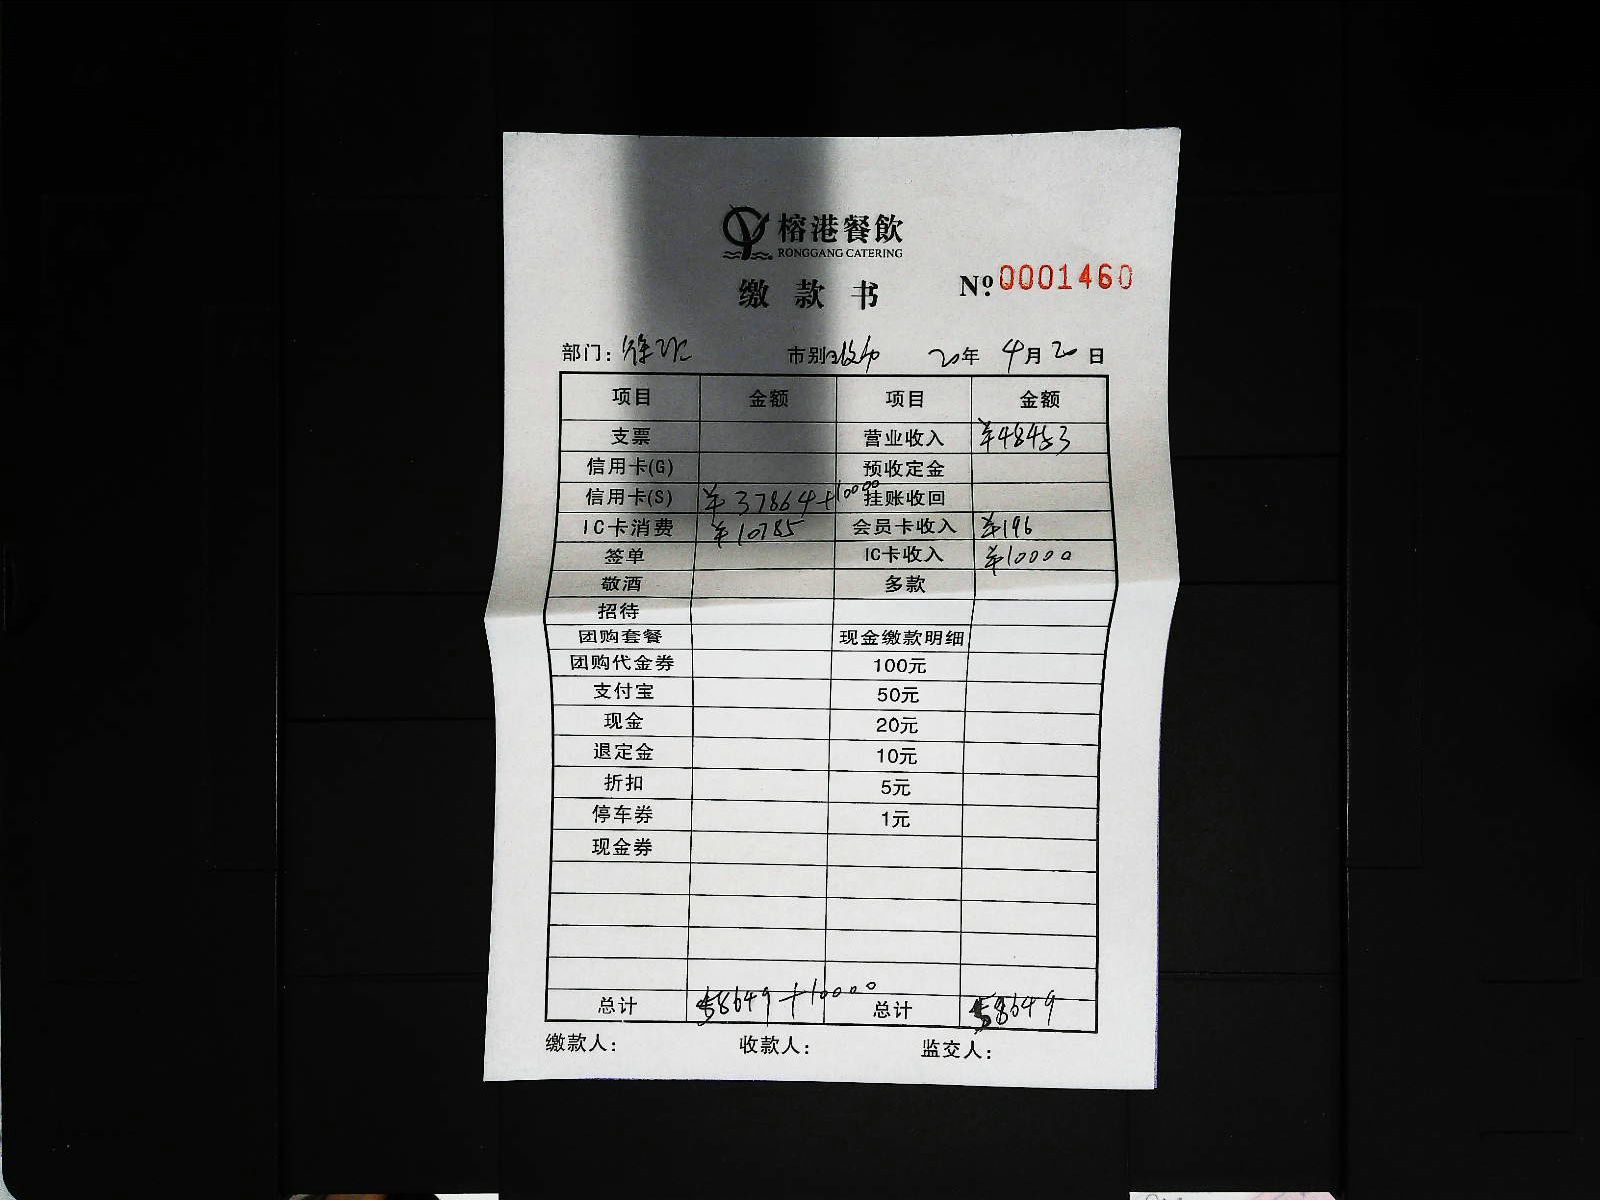 榕港餐飲
RONGGANG CATERING
缴款书
Nº 0001460
部门： 市别 20年 4月 20日
项目 金额 项目 金额
支票 营业收入 ¥48453
信用卡(G) 预收定金
信用卡(S) ¥37864+10000 挂账收回
IC卡消费 ¥10785 会员卡收入 ¥196
签单 IC卡收入 ¥10000
敬酒 多款
招待
团购套餐 现金缴款明细
团购代金券 100元
支付宝 50元
现金 20元
退定金 10元
折扣 5元
停车券 1元
现金券
总计 58649+10000 总计 58649
缴款人： 收款人： 监交人：